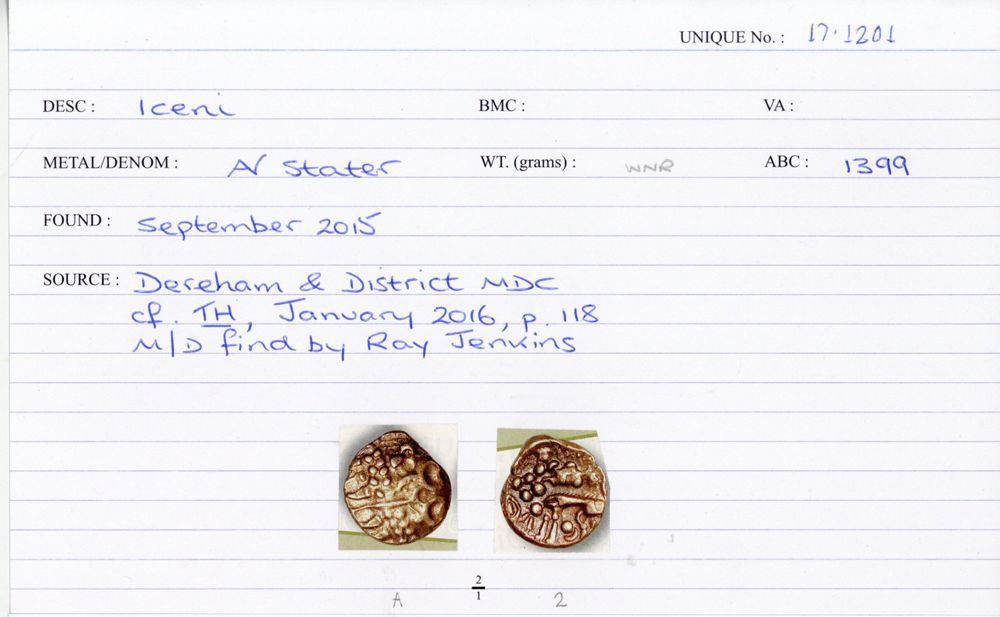 UNIQUE No. : 17.1201
DESC : Iceni BMC : VA :
METAL/DENOM : AV Stater WT. (grams) : WNR ABC : 1399
FOUND : September 2015
SOURCE : Dereham & District MDC
cf. TH, January 2016, p. 118
M/D find by Ray Jenkins
2
1
A 2